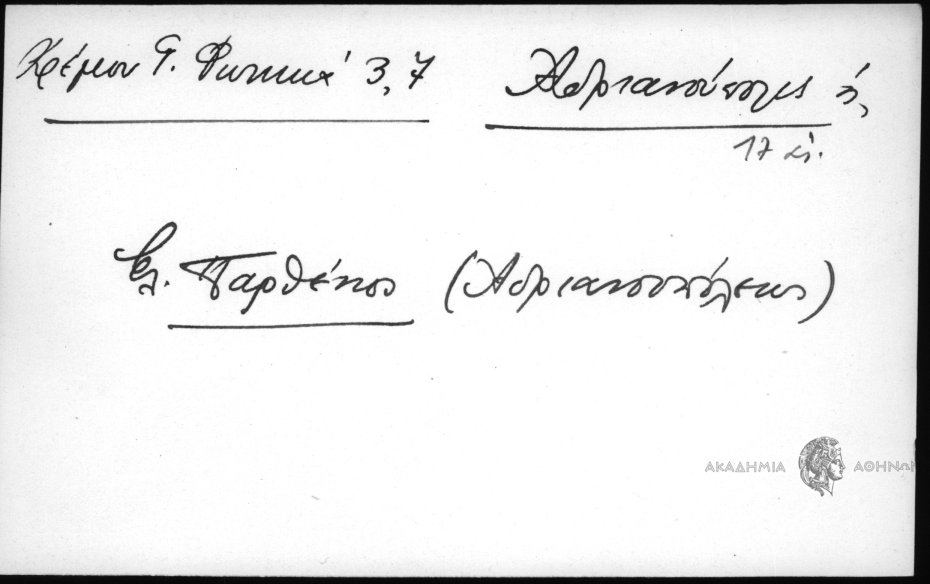 Κρέμου Γ. Φωκικά 3,7 Αδριανούπολις ή,
17 αι.
βλ. Παρθένιος (Αδριανουπόλεως)
ΑΚΑΔΗΜΙΑ ΑΘΗΝΩΝ